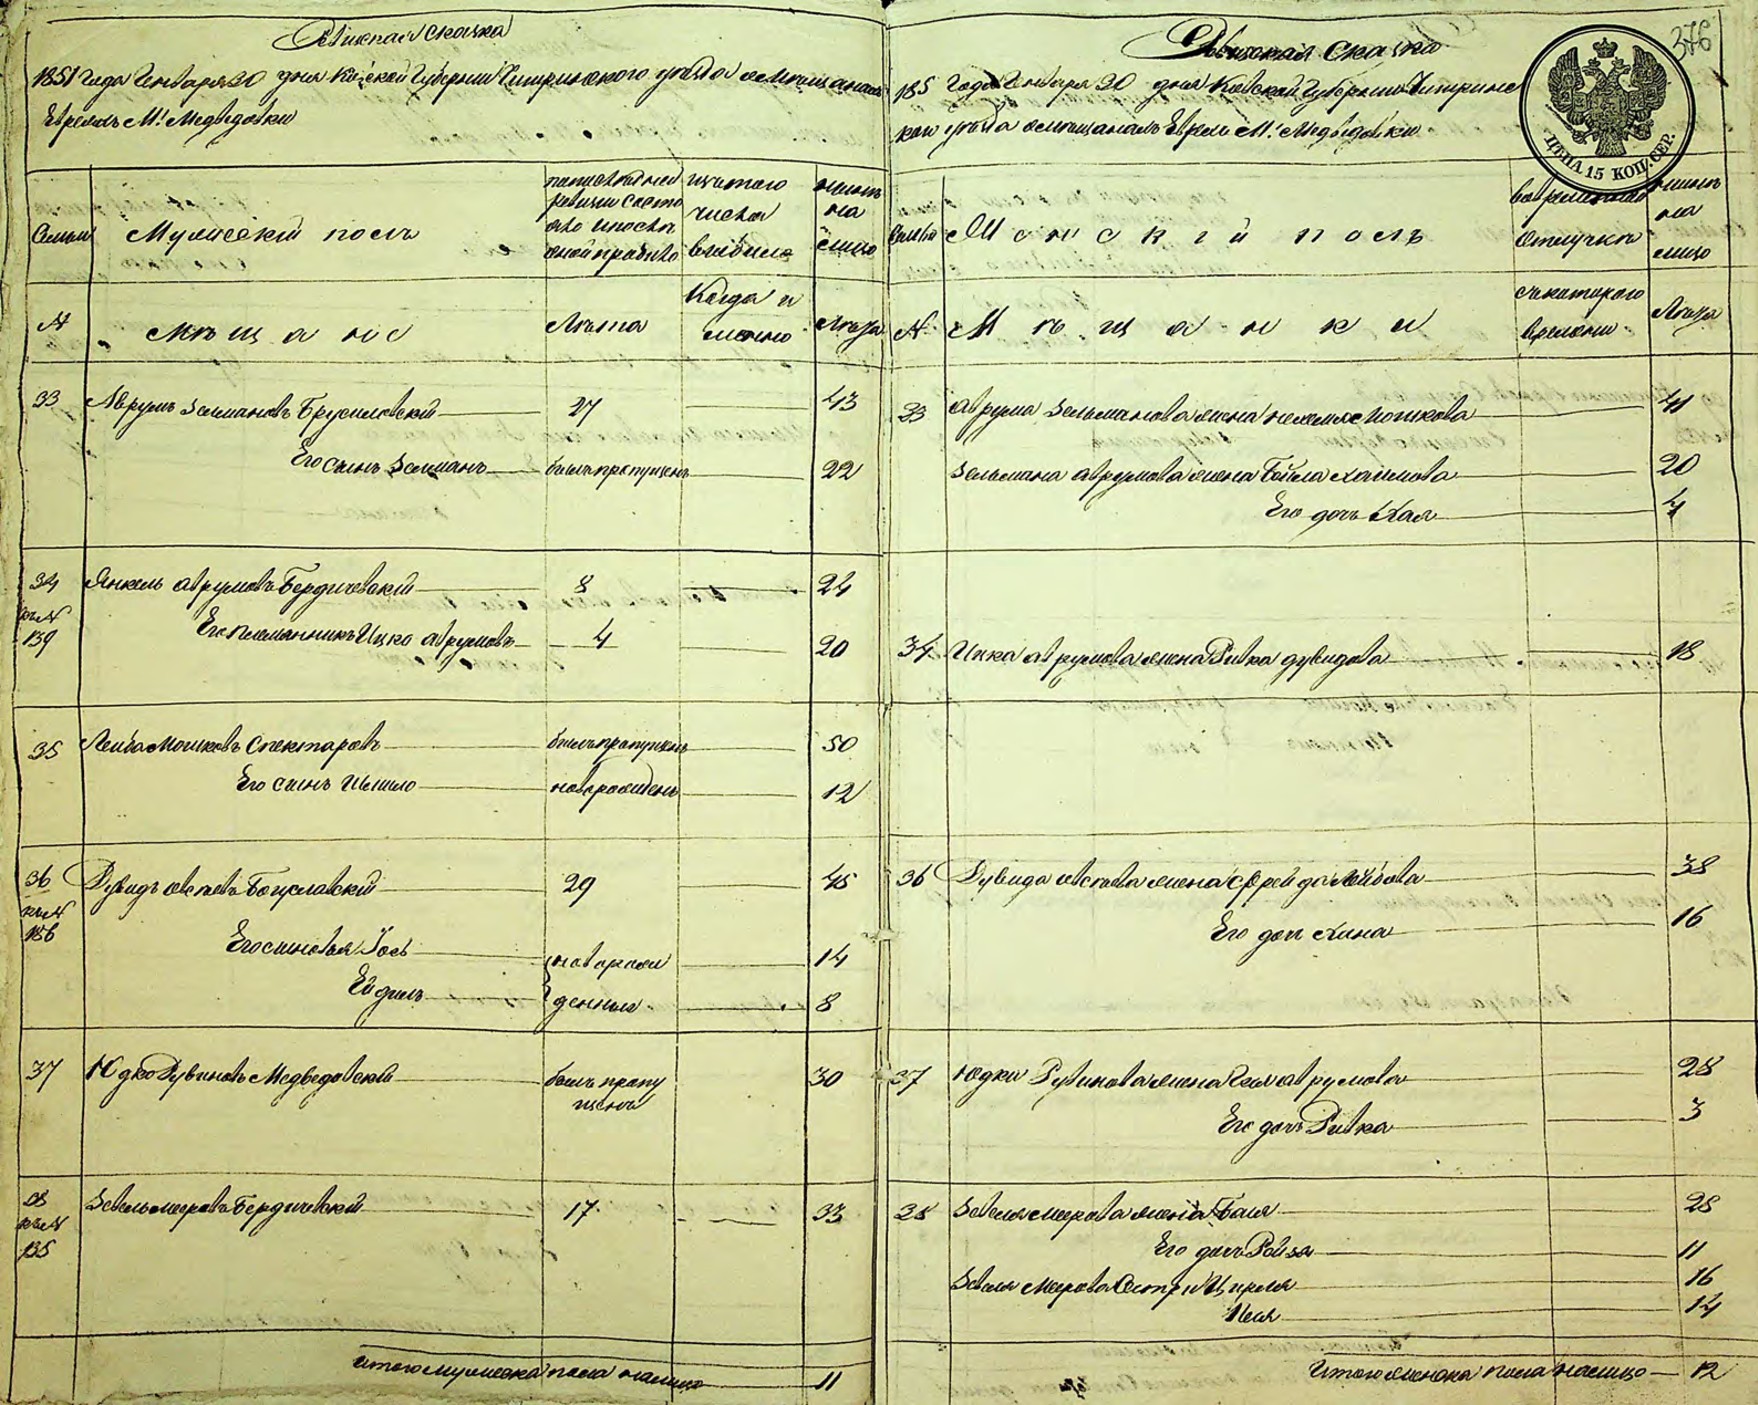 Ревизская сказка
1851 года Генваря 30 дня Киевской Губернии Чигиринского уезда о мещанах
Евреях М. Медведовки
Семьи
Мужеский полъ
по последней ревизии состояло и после оной прибыло
изъ того числа выбыло
ныне на лицо
№
мещане
Лета
Когда именно
Лета
33 Аврумъ Зельмановъ Брусиловскій 27 43
Его сынъ Зельманъ былъ пропущенъ 22
34 Янкель Аврумовъ Бердичевскій 8 24
139 Его племянникъ Ицко Аврумовъ 4 20
35 Лейба Мошковъ Спектаровъ былъ пропущенъ 50
Его сынъ Шмило новорожденъ 12
36 Дувидъ Овсеевъ Богуславскій 29 45
186
Его сыновья Іось новорож 14
Ейдиль денныя 8
37 Юдко Рувиновъ Медведовскій былъ пропу 30
щенъ
38 Зевель Мееровъ Бердичевскій 17 33
135
Итого мужеска пола налицо 11
Ревизская сказка
376
185 года Генваря 30 дня Киевской Губернии Чигиринс
кого уезда о мещанахъ Евреяхъ М. Медведовки
ЦЕНА 15 КОП. СЕР.
Семьи
Женскій полъ
во временной отлучке
ныне на лицо
№
Мещанки
съ котораго времени
Лета
33 Аврума Зельманова жена Нехема Мошкова 41
Зельмана Аврумова жена Бейла Хаимова 20
Его дочь Хая 4
34 Ицка Аврумова жена Ривка Дувидова 18
36 Дувида Овсеева жена Фрейда Лейбова 38
Его дочь Хина 16
37 Юдки Рувинова жена Чая Аврумова 28
Его дочь Ривка 3
38 Зевеля Меерова жена Бася 28
Его дочь Ройза 11
Зевеля Меерова сестры Ципра 16
Песя 14
Итого женска пола налицо 12